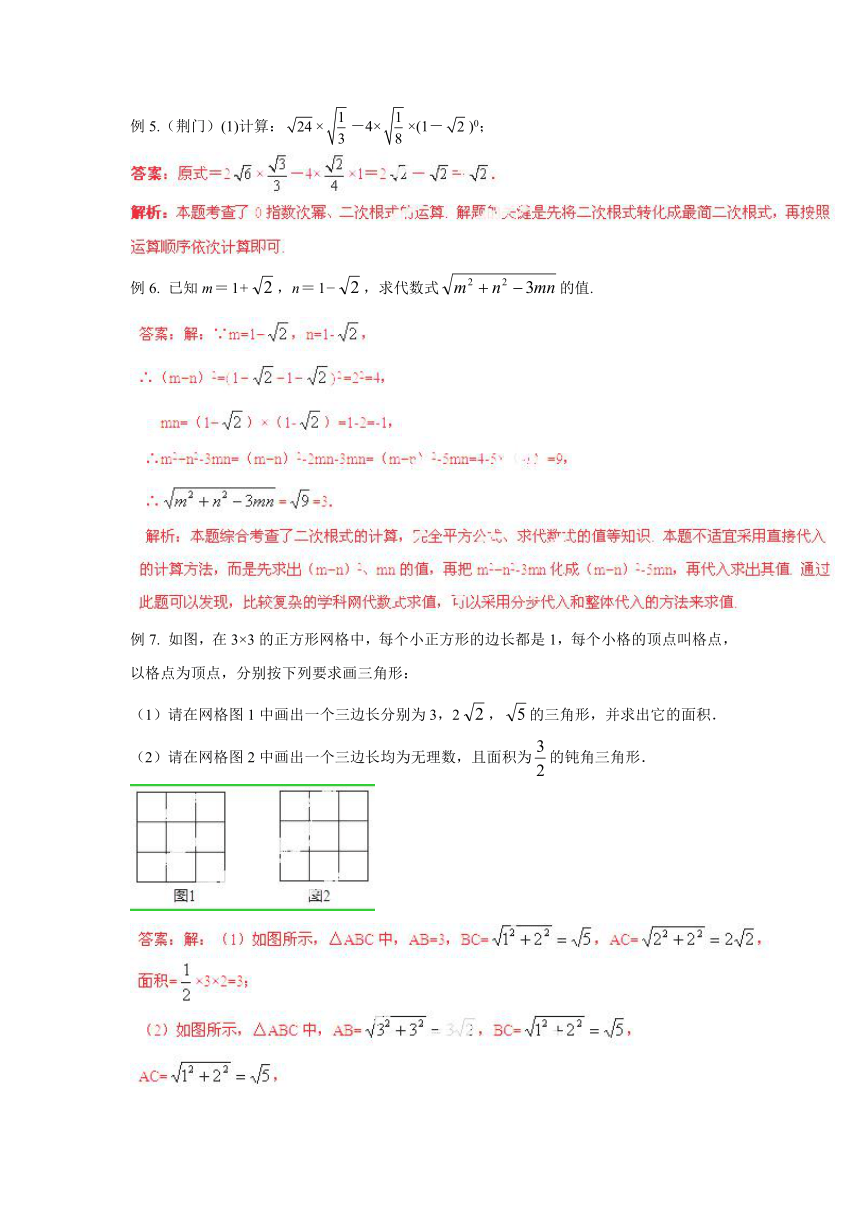 例 5.（荆门）(1)计算：√24 × √(1/3) －4× √(1/8) ×(1－√2 )⁰;
答案：原式＝2√6 × √3/3 －4× √2/4 ×1＝2√2－√2＝√2．
解析：本题考查了 0 指数次幂、二次根式的运算. 解题的关键是先将二次根式转化成最简二次根式，再按照
运算顺序依次计算即可.
例 6. 已知 m＝1+√2，n＝1−√2，求代数式 √(m²+n²−3mn) 的值.
答案：解：∵m=1−√2，n=1-√2，
∴（m−n）²=(1−√2−1−√2)²=2²=4，
mn=（1−√2）×（1-√2）=1-2=-1，
∴m²−n²-3mn=（m−n）²-2mn-3mn=（m−n）²-5mn=4-5× =9，
∴ √(m²+n²−3mn) = √9 =3．
解析：本题综合考查了二次根式的计算，完全平方公式、求代数式的值等知识. 本题不适宜采用直接代入
的计算方法，而是先求出（m−n）²、mn 的值，再把 m²−n²-3mn 化成（m−n）²-5mn，再代入求出其值. 通过
此题可以发现，比较复杂的学科网代数式求值，可以采用分步代入和整体代入的方法来求值.
例 7. 如图，在 3×3 的正方形网格中，每个小正方形的边长都是 1，每个小格的顶点叫格点，
以格点为顶点，分别按下列要求画三角形：
（1）请在网格图 1 中画出一个三边长分别为 3，2√2，√5 的三角形，并求出它的面积．
（2）请在网格图 2 中画出一个三边长均为无理数，且面积为 3/2 的钝角三角形．
图1 图2
答案：解：（1）如图所示，△ABC 中，AB=3，BC= √(1²+2²) = √5，AC= √(2²+2²) = 2√2，
面积= 1/2 ×3×2=3；
（2）如图所示，△ABC 中，AB= √(3²+3²) = 3√2，BC= √(1²+2²) = √5，
AC= √(1²+2²) = √5，